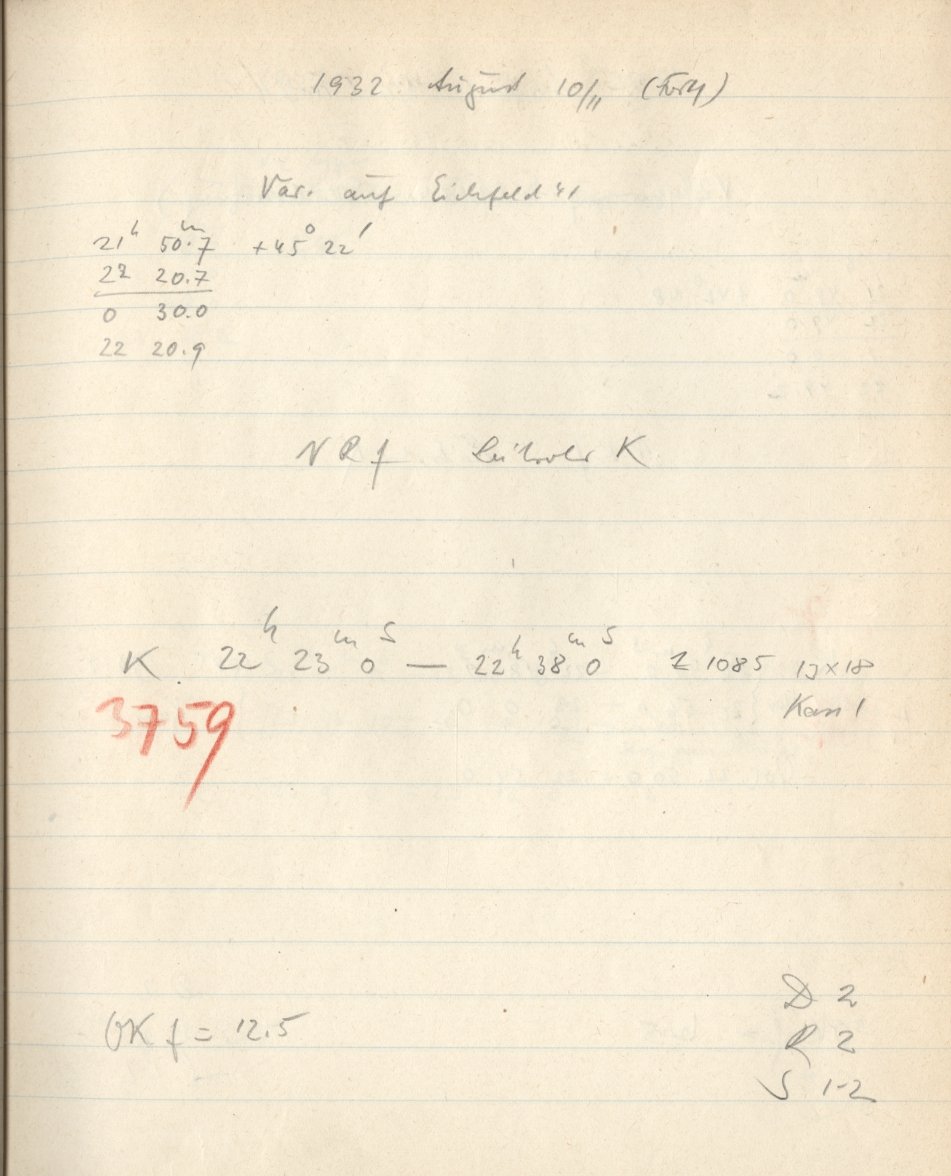 1932 August 10/11 (Forts)
Var. auf Eichfeld
21h 50.7m +45° 22'
22 20.7
0 30.0
22 20.9
N R f K
K 22h 23m 0s — 22h 38m 0s Z 1085 13×18
3759 Kass 1
D 2
OK f = 12.5 R 2
S 1-2